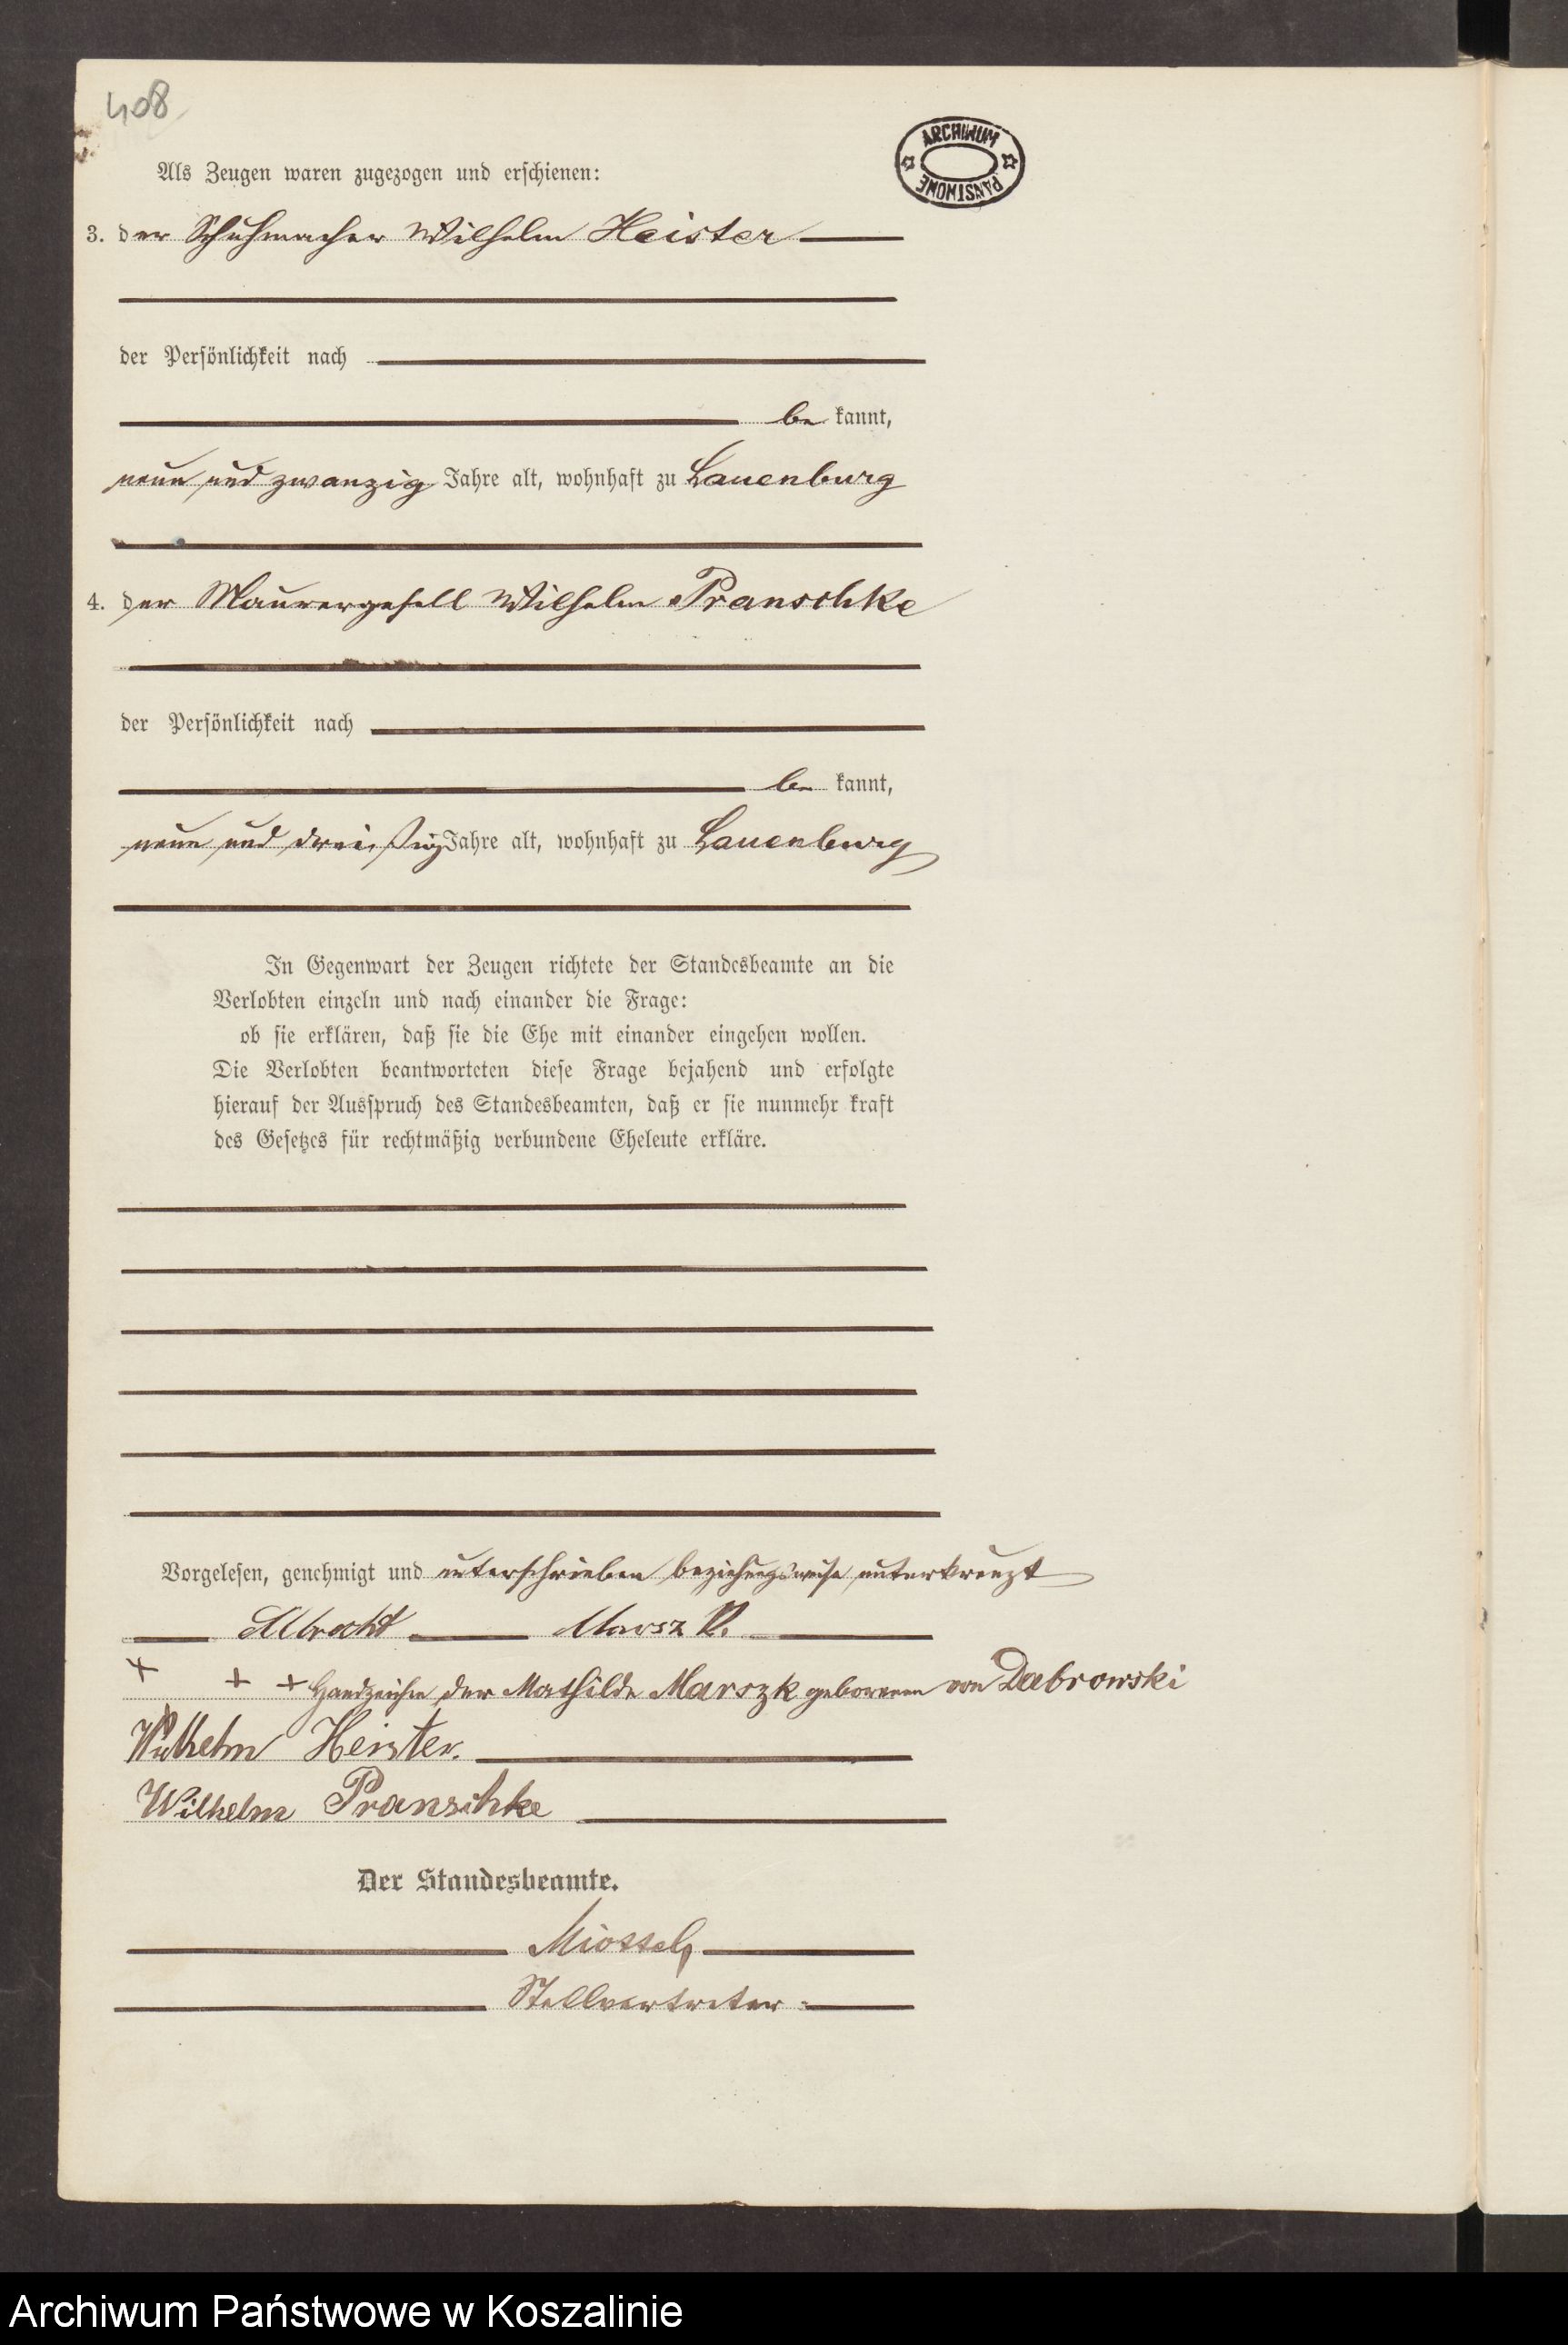 408
ARCHIWUM
PAŃSTWOWE
Als Zeugen waren zugezogen und erschienen:
3. der Schuhmacher Wilhelm Heister
der Persönlichkeit nach
be kannt,
neun und zwanzig Jahre alt, wohnhaft zu Lauenburg
4. der Maurergesell Wilhelm Pranschke
der Persönlichkeit nach
be kannt,
neun und dreißig Jahre alt, wohnhaft zu Lauenburg
In Gegenwart der Zeugen richtete der Standesbeamte an die
Verlobten einzeln und nach einander die Frage:
ob sie erklären, daß sie die Ehe mit einander eingehen wollen.
Die Verlobten beantworteten diese Frage bejahend und erfolgte
hierauf der Ausspruch des Standesbeamten, daß er sie nunmehr kraft
des Gesetzes für rechtmäßig verbundene Eheleute erkläre.
Vorgelesen, genehmigt und unterschrieben beziehungsweise unterkreuzt
Albrecht
+ + + Handzeichen der Mathilde Marszk geborenen von Dabrowski
Wilhelm Heister.
Wilhelm Pranschke
Der Standesbeamte.
Stellvertreter
Archiwum Państwowe w Koszalinie